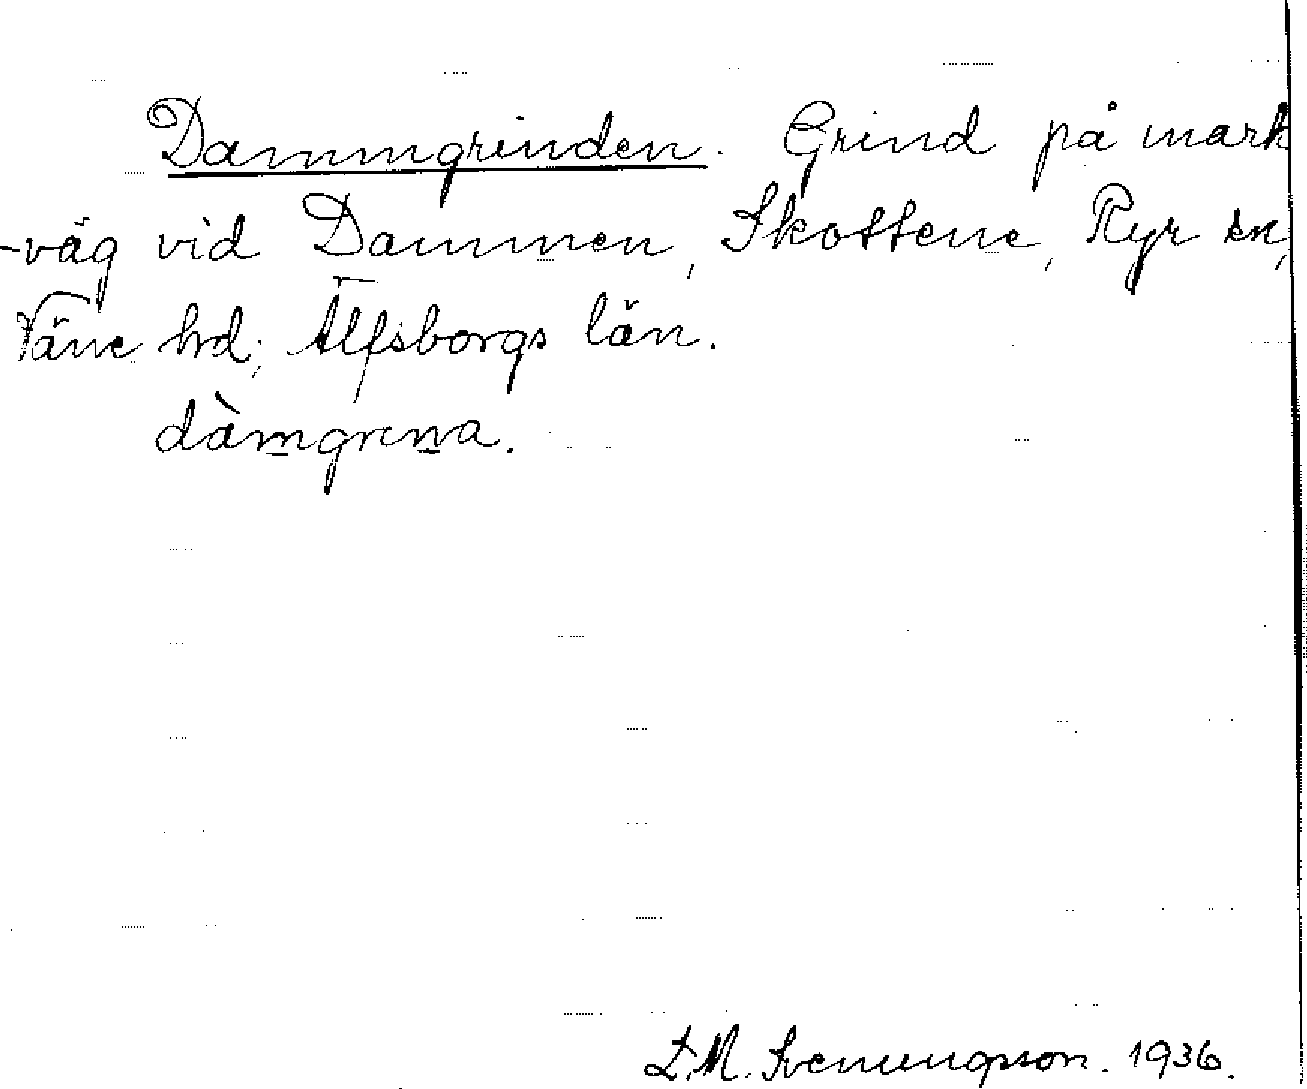 Dammgrinden. Grind på mark
-väg vid Dammen, Skottene, Ryr sn,
Väne hd, Älfsborgs län.
dàmgrena.
L.M. Svenungsson. 1936.